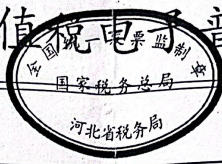 值税电子普
全国统一发票监制章
国家税务总局
河北省税务局